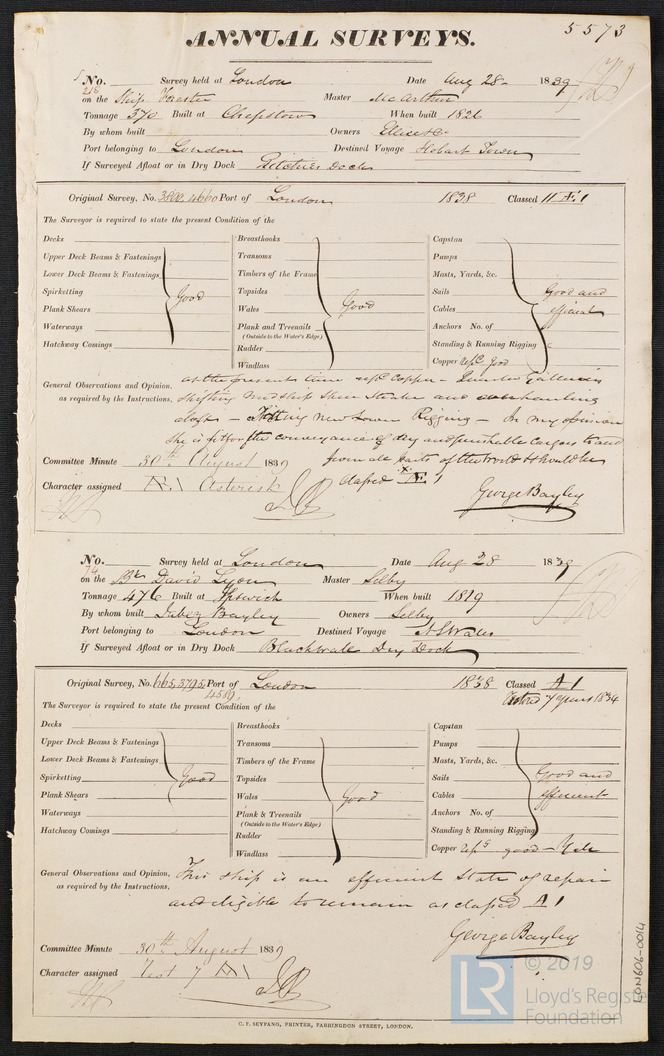 5573
ANNUAL SURVEYS.
No. 218 Survey held at London Date Aug 28 1839
on the Ship Forester Master McArthur
Tonnage 370 Built at Chepstow When built 1826
By whom built Owners Ellice & Co
Port belonging to London Destined Voyage Hobart Town
If Surveyed Afloat or in Dry Dock Fletchers Dock
Original Survey, No. 4660 Port of London 1838 Classed Æ 1
The Surveyor is required to state the present Condition of the
Decks Breasthooks Capstan
Upper Deck Beams & Fastenings Transoms Pumps
Lower Deck Beams & Fastenings Timbers of the Frame Masts, Yards, &c.
Spirketting Good Topsides Sails Good and
Plank Shears Wales Good Cables efficient
Waterways Plank and Treenails Anchors No. of
(Outside to the Water's Edge)
Hatchway Comings Rudder Standing & Running Rigging
Windlass Copper good
General Observations and Opinion, at the present time Copper
as required by the Instructions, shifting and overhauling
aloft - Fitting new Lower Rigging - In my opinion
she is fit for the conveyance of dry and perishable cargoes to and
Committee Minute 30th August 1839 from all parts of the World & should be
Character assigned Æ 1 Asterisk classed Æ 1
George Bayley
No. 74 Survey held at London Date Aug 28 1839
on the Bk David Lyon Master Selby
Tonnage 476 Built at Ipswich When built 1819
By whom built Jabez Bayley Owners Selby
Port belonging to London Destined Voyage NSWales
If Surveyed Afloat or in Dry Dock Blackwall Dry Dock
Original Survey, No. 665, 3795, 4589, Port of London 1838 Classed A 1
Restored 7 years 1834
The Surveyor is required to state the present Condition of the
Decks Breasthooks Capstan
Upper Deck Beams & Fastenings Transoms Pumps
Lower Deck Beams & Fastenings Timbers of the Frame Masts, Yards, &c.
Spirketting Good Topsides Sails Good and
Plank Shears Wales Good Cables efficient
Waterways Plank & Treenails Anchors No. of
(Outside to the Water's Edge)
Hatchway Comings Rudder Standing & Running Rigging
Windlass Copper good
General Observations and Opinion, This ship is in efficient State of repair
as required by the Instructions, and eligible to remain as classed A 1
George Bayley
Committee Minute 30th August 1839
Character assigned 7 A1
LON606-0014
© 2019
LR Lloyd's Register
Foundation
C. F. SEYFANG, PRINTER, FARRINGDON STREET, LONDON.